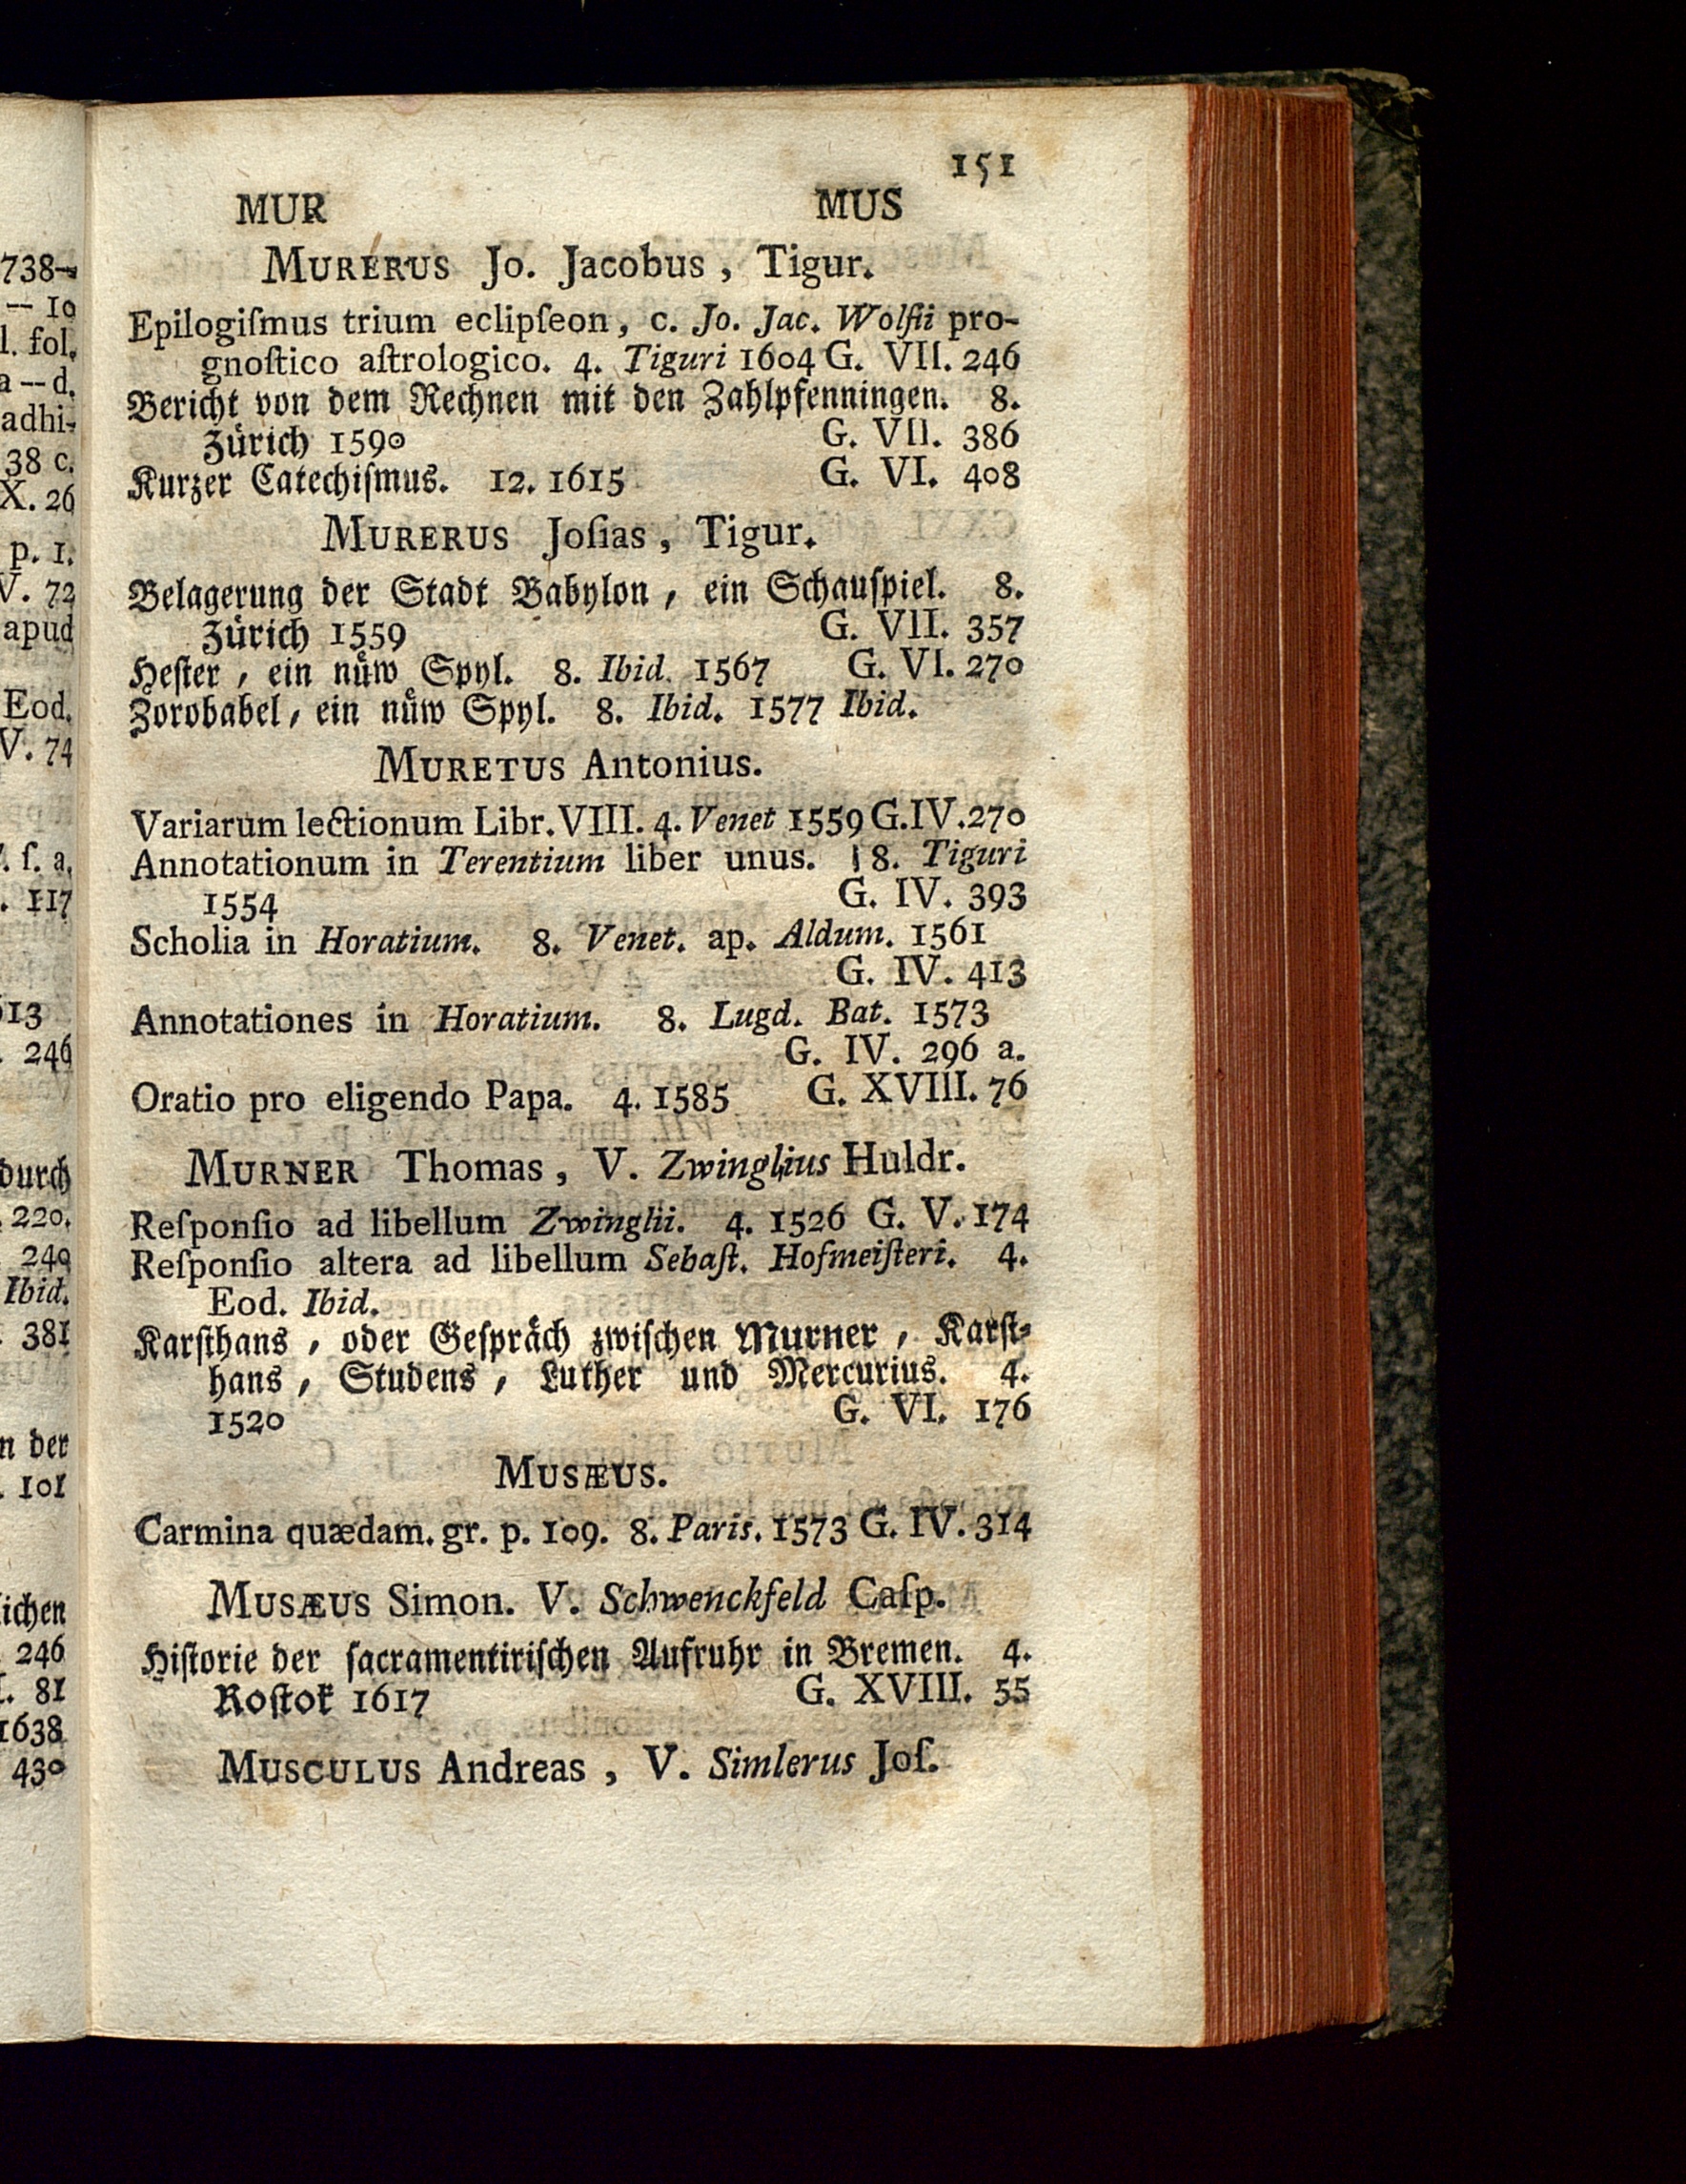 151
MUR MUS
MURERUS Jo. Jacobus, Tigur.
Epilogiſmus trium eclipſeon, c. Jo. Jac. Wolfii pro-
gnoſtico aſtrologico. 4. Tiguri 1604 G. VII. 246
Bericht von dem Rechnen mit den Zahlpfenningen. 8.
Zürich 1590 G. VII. 386
Kurzer Catechiſmus. 12. 1615 G. VI. 408
MURERUS Joſias, Tigur.
Belagerung der Stadt Babylon, ein Schauſpiel. 8.
Zürich 1559 G. VII. 357
Heſter, ein nüw Spyl. 8. Ibid. 1567 G. VI. 270
Zorobabel, ein nüw Spyl. 8. Ibid. 1577 Ibid.
MURETUS Antonius.
Variarum lectionum Libr. VIII. 4. Venet 1559 G. IV. 270
Annotationum in Terentium liber unus. 8. Tiguri
1554 G. IV. 393
Scholia in Horatium. 8. Venet. ap. Aldum. 1561
G. IV. 413
Annotationes in Horatium. 8. Lugd. Bat. 1573
G. IV. 296 a.
Oratio pro eligendo Papa. 4. 1585 G. XVIII. 76
MURNER Thomas, V. Zwinglius Huldr.
Reſponſio ad libellum Zwinglii. 4. 1526 G. V. 174
Reſponſio altera ad libellum Sebaſt. Hofmeiſteri. 4.
Eod. Ibid.
Karſthans, oder Geſpräch zwiſchen Murner, Karſt-
hans, Studens, Luther und Mercurius. 4.
1520 G. VI. 176
MUSÆUS.
Carmina quædam. gr. p. 109. 8. Paris. 1573 G. IV. 314
MUSÆUS Simon. V. Schwenckfeld Caſp.
Hiſtorie der ſacramentiriſchen Aufruhr in Bremen. 4.
Roſtok 1617 G. XVIII. 55
MUSCULUS Andreas, V. Simlerus Joſ.